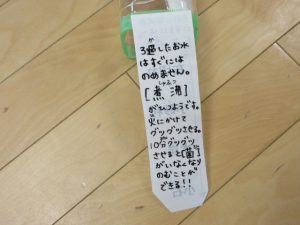 ろ過したお水
はすぐには
のめません。
[煮沸]
がひつようです。
火にかけて
グツグツさせる。
10分グツグツ
させると[菌]
がいなくなり
のむことが
できる!!